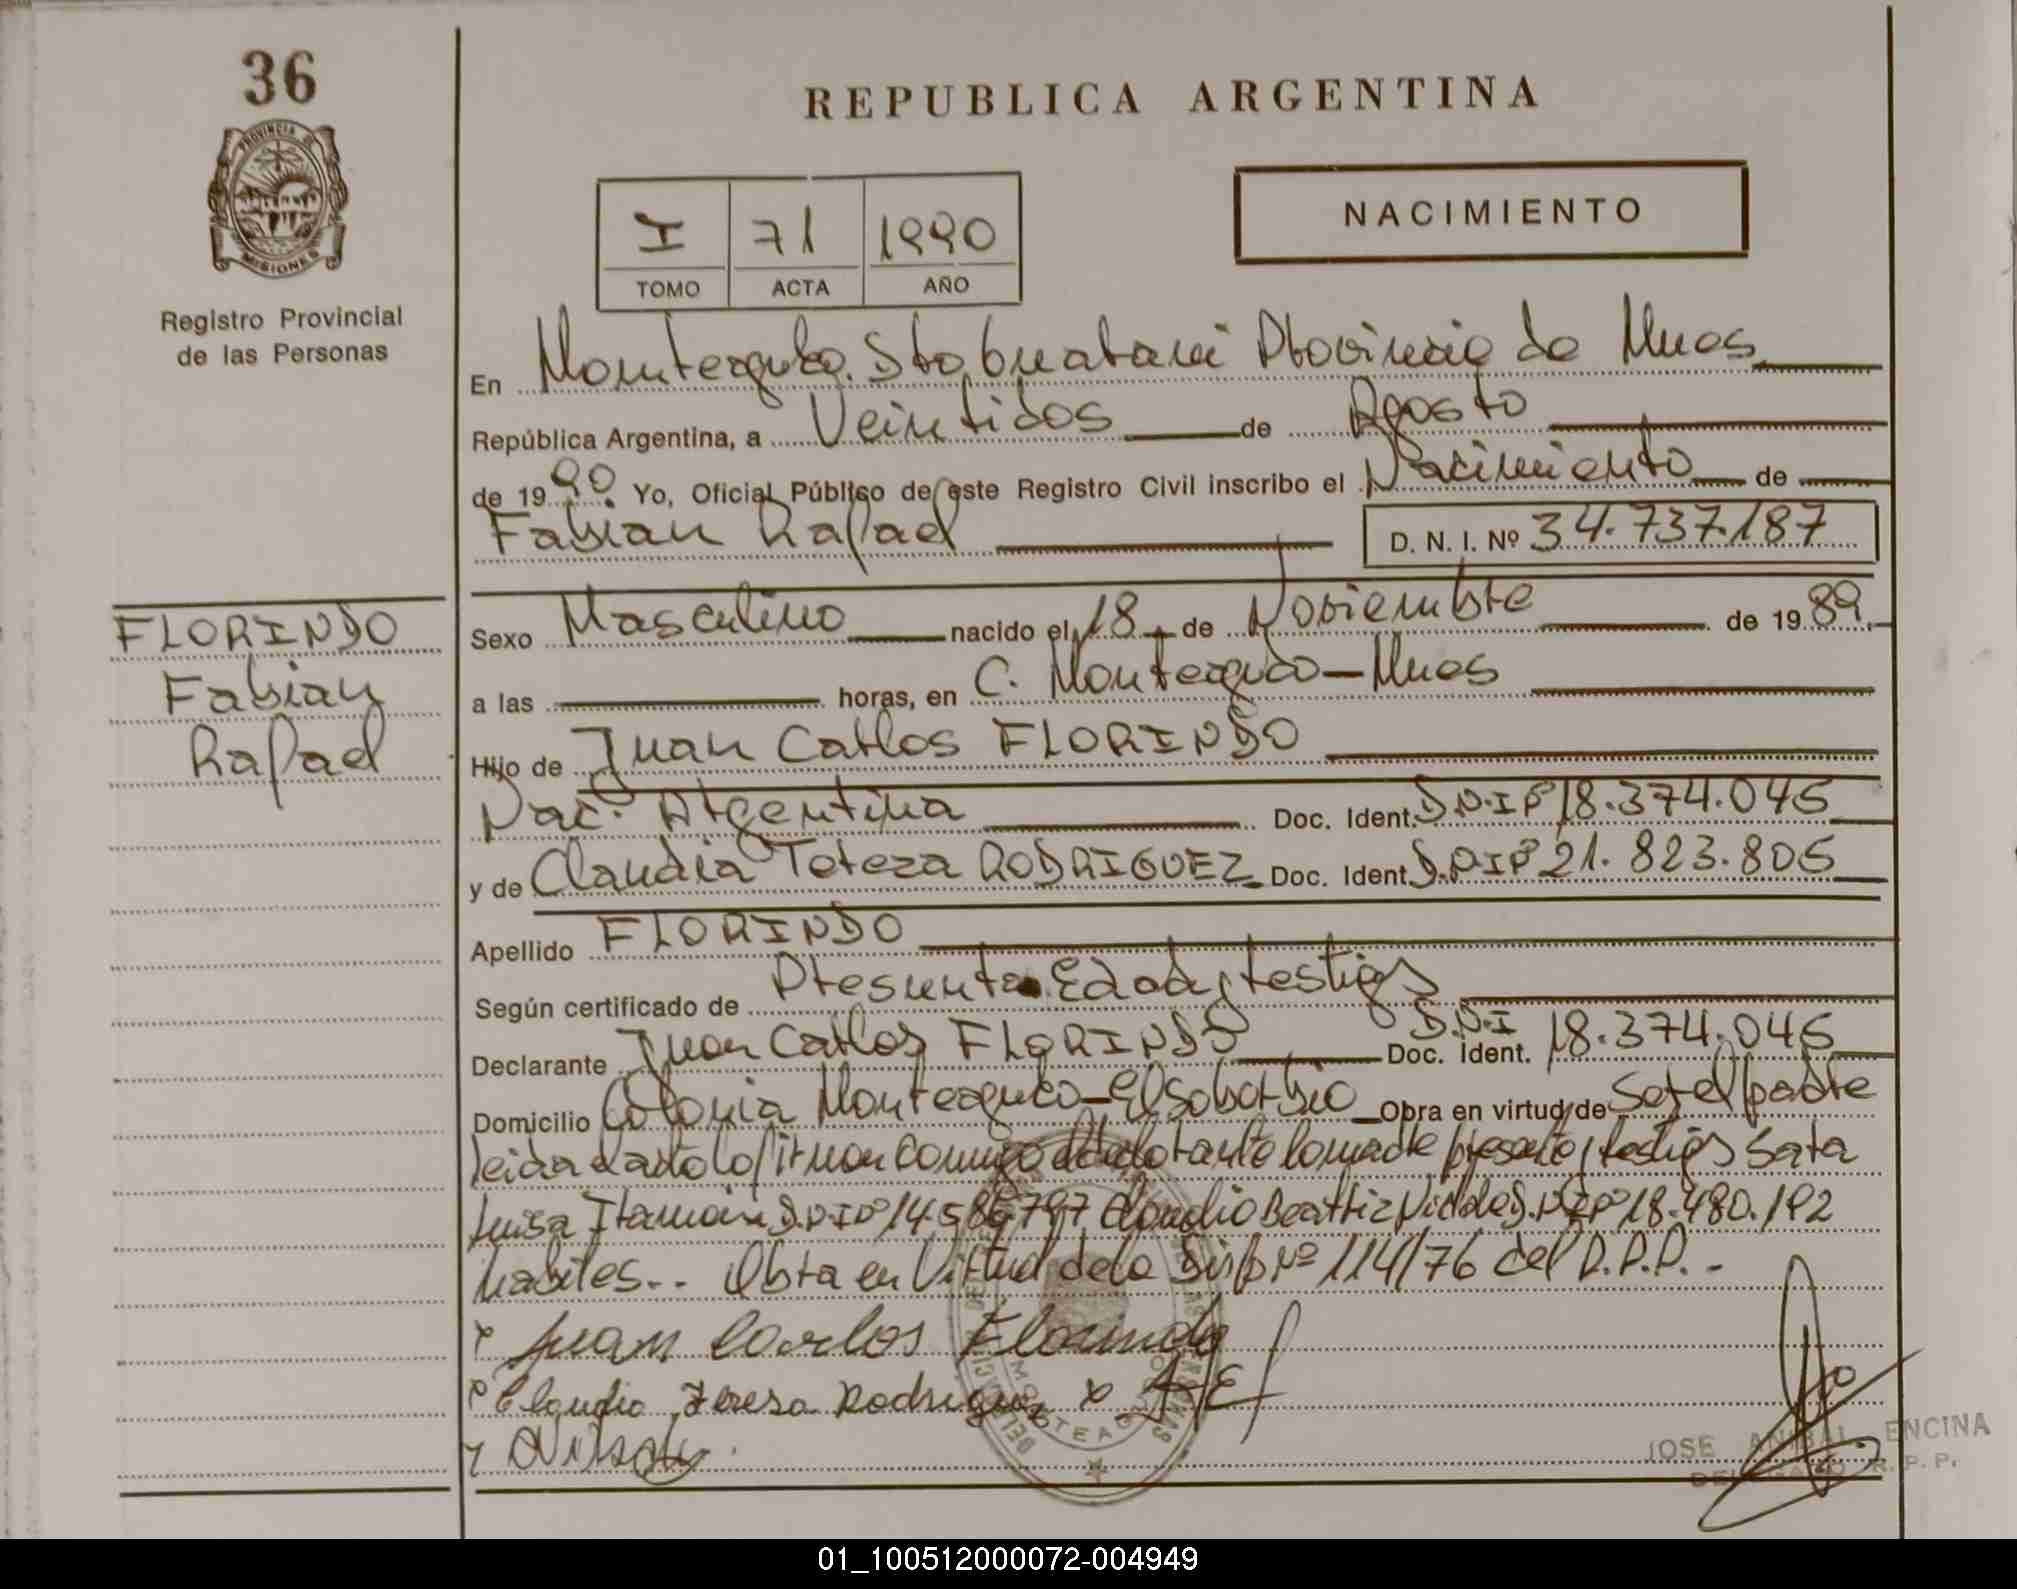 36
REPUBLICA ARGENTINA
PROVINCIA DE
MISIONES
Registro Provincial
de las Personas
I 71 1990
TOMO ACTA AÑO
NACIMIENTO
En Monteagudo. Dto Guarani Provincia de Mnes
República Argentina, a Veintidos de Agosto
de 19 90. Yo, Oficial Público de este Registro Civil inscribo el Nacimiento de
Fabian Rafael D. N. I. Nº 34.737.187
FLORINDO
Fabian
Rafael
Sexo Masculino nacido el 18 de Noviembre de 19 89
a las horas, en C. Monteagudo-Mnes
Hijo de Juan Carlos FLORINDO
Nac. Argentina Doc. Ident. D.N.I Nº 18.374.045
y de Claudia Tereza RODRIGUEZ Doc. Ident. D.N.I Nº 21.823.805
Apellido FLORINDO
Según certificado de Presunta Edad y testigos
Declarante Juan Carlos FLORINDO Doc. Ident. D.N.I 18.374.045
Domicilio Colonia Monteagudo - El Soberbio Obra en virtud de Ser el padre
leida el acta lo firman conmigo el declarante la madre presente y testigos Sara
Luisa D.N.I Nº Claudio Beatriz D.N.I Nº 18.480.192
habiles.. Obra en Virtud de la Disp Nº 114/76 del R.P.P.-
x Juan Carlos Florindo
x Claudia Teresa Rodriguez x
JOSE ANIBAL ENCINA
DELEGADO R.P.P.
01_100512000072-004949